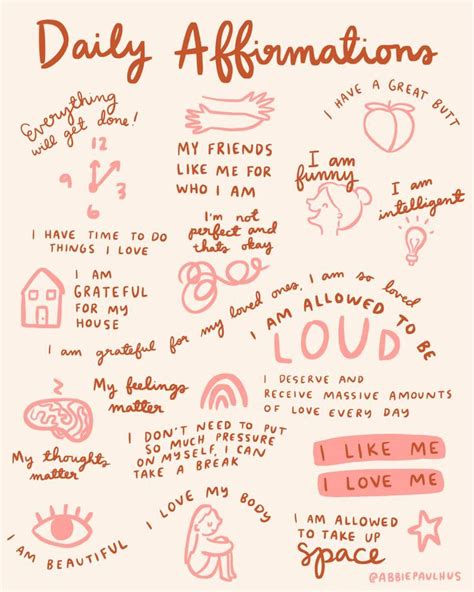 Daily Affirmations
Everything
will get done!
12
9
3
6
I HAVE TIME TO DO
THINGS I LOVE
MY FRIENDS
LIKE ME FOR
WHO I AM
I HAVE A GREAT BUTT
I am
funny
I am
intelligent
I'm not
perfect and
thats okay
I AM
GRATEFUL
FOR MY
HOUSE
I am grateful for my loved ones, I am so loved
I AM ALLOWED TO BE
LOUD
My feelings
matter
My thoughts
matter
I DESERVE AND
RECEIVE MASSIVE AMOUNTS
OF LOVE EVERY DAY
I DON'T NEED TO PUT
SO MUCH PRESSURE
ON MYSELF, I CAN
TAKE A BREAK
I LIKE ME
I LOVE ME
I AM BEAUTIFUL
I LOVE MY BODY
I AM ALLOWED
TO TAKE UP
space
@ABBIEPAULHUS